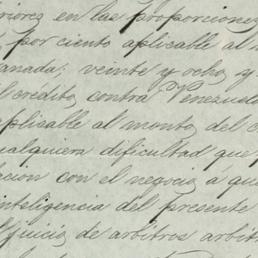 riores en las proporciones
por ciento aplicable al m
anada; veinte y ocho y
l credito contra Venezuela
aplicable al monto del c
ualquiera dificultad que p
acion con el negocio a que
inteligencia del presente
juicio de arbitros arbit